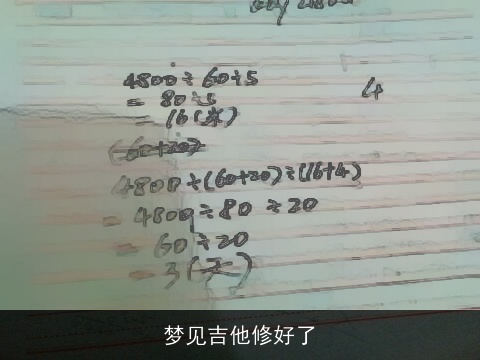 4800÷60÷5
= 80÷5
= 16(米)
4
(60+20)
4800÷(60+20)÷(16+4)
= 4800÷80÷20
= 60÷20
= 3(天)
梦见吉他修好了